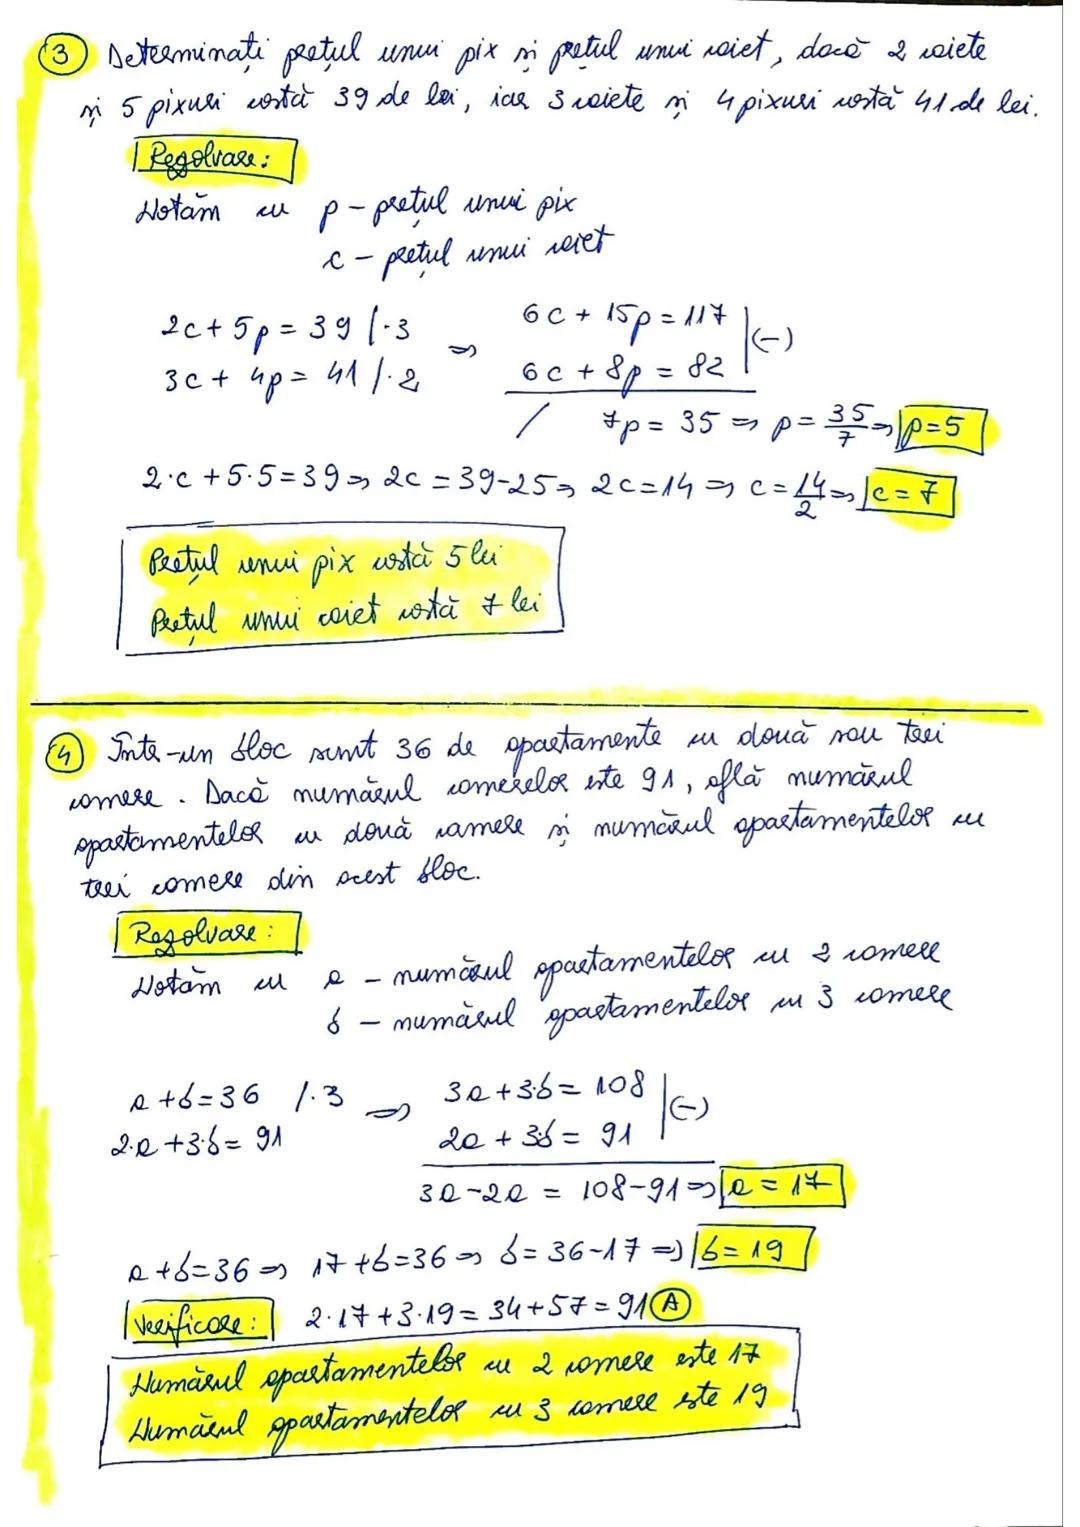 3 Determinați prețul unui pix și prețul unui caiet, dacă 2 caiete
și 5 pixuri costă 39 de lei, iar 3 caiete și 4 pixuri costă 41 de lei.
Rezolvare:
Notăm cu p - prețul unui pix
c - prețul unui caiet
2c + 5p = 39 /·3 ⇒ 6c + 15p = 117 | (-)
3c + 4p = 41 /·2 6c + 8p = 82
/ 7p = 35 ⇒ p = 35/7 ⇒ p = 5
2·c + 5·5 = 39 ⇒ 2c = 39-25 ⇒ 2c = 14 ⇒ c = 14/2 ⇒ c = 7
Prețul unui pix costă 5 lei
Prețul unui caiet costă 7 lei
4 Într-un bloc sunt 36 de apartamente cu două sau trei
camere. Dacă numărul camerelor este 91, află numărul
apartamentelor cu două camere și numărul apartamentelor cu
trei camere din acest bloc.
Rezolvare:
Notăm cu a - numărul apartamentelor cu 2 camere
b - numărul apartamentelor cu 3 camere
a + b = 36 /·3 ⇒ 3a + 3·b = 108 | (-)
2·a + 3·b = 91 2a + 3b = 91
3a - 2a = 108 - 91 ⇒ a = 17
a + b = 36 ⇒ 17 + b = 36 ⇒ b = 36 - 17 ⇒ b = 19
Verificare: 2·17 + 3·19 = 34 + 57 = 91 A
Numărul apartamentelor cu 2 camere este 17
Numărul apartamentelor cu 3 camere este 19